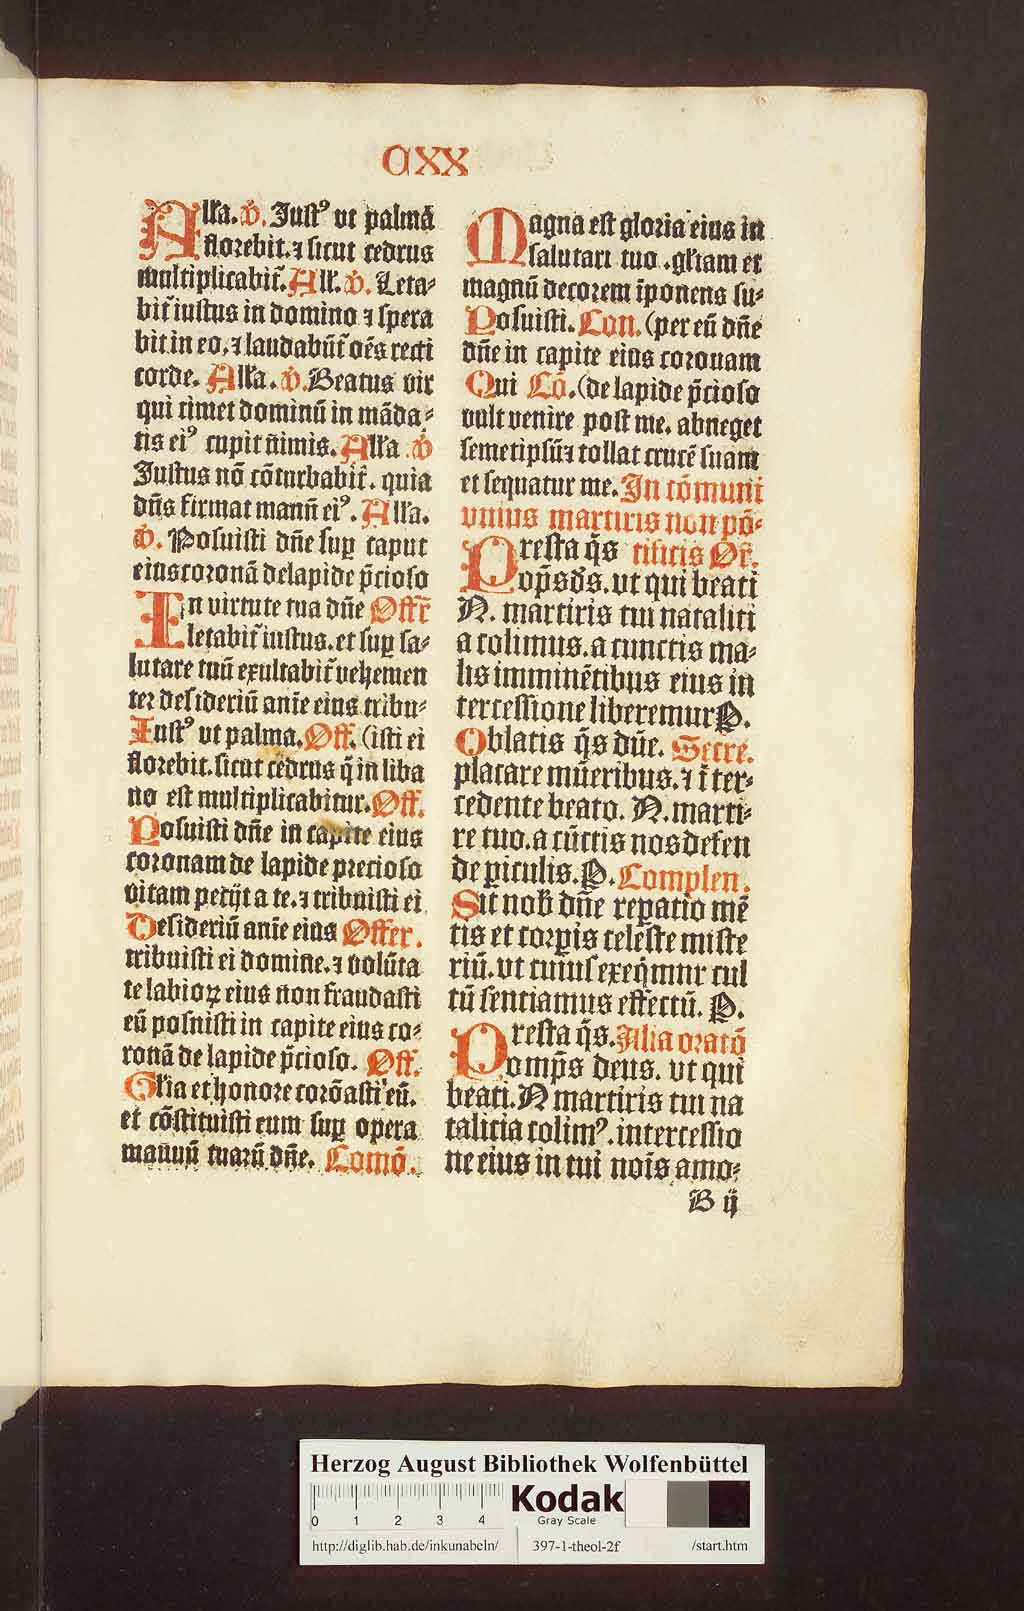 CXX
Alła. v̄. Iustꝰ vt palmā
florebit. ⁊ sicut cedrus
multiplicabit̄. All. v̄. Leta-
bit̄ iustus in domino ⁊ spera
bit in eo. ⁊ laudabūt̄ oēs recti
corde. Alła. v̄. Beatus vir
qui timet dominū in māda-
tis eiꝰ cupit nimis. Alła v̄
Iustus nō cōturbabit̄. quia
dn̄s firmat manū eiꝰ. Alła.
v̄. Posuisti dn̄e suꝑ caput
eius coronā de lapide p̄cioso
In virtute tua dn̄e Offr̄
letabit̄ iustus. et suꝑ sa-
lutare tuū exultabit̄ vehemen
ter desideriū anīe eius tribu-
Iustꝰ vt palma. Off. (isti ei
florebit. sicut cedrus q̄ in liba
no est multiplicabitur. Off.
Posuisti dn̄e in capite eius
coronam de lapide precioso
vitam petijt a te. ⁊ tribuisti ei
Desideriū anīe eius Offer.
tribuisti ei domine. ⁊ volūta
te labioꝝ eius non fraudasti
eū posuisti in capite eius co-
ronā de lapide p̄cioso. Off.
Glīa et honore corōasti eū.
et cōstituisti eum suꝑ opera
manuū tuarū dn̄e. Comō.
Magna est gloria eius in
salutari tuo. głiam et
magnū decorem īponens su-
Posuisti. Con. (per eū dn̄e
dn̄e in capite eius coronam
Qui Cō. (de lapide p̄cioso
vult venire post me. abneget
semetipsū ⁊ tollat crucē suam
et sequatur me. In cōmuni
vnius martiris non pō-
Presta q̄s tificis Or̄.
omp̄s ds̄. vt qui beati
N. martiris tui nataliti
a colimus. a cunctis ma-
lis imminētibus eius in
tercessione liberemur P.
Oblatis q̄s dn̄e. Secre.
placare mūeribus. ⁊ īter-
cedente beato. N. marti-
re tuo. a cūctis nos defen
de ꝑiculis. P. Complen.
Sit nob̄ dn̄e reꝑatio mē
tis et corꝑis celeste miste
riū. vt cuius exeq̄mur cul
tū sentiamus effectū. P.
Presta q̄s. Alia oratō
omp̄s deus. vt qui
beati. N martiris tui na
talicia colimꝰ. intercessio
ne eius in tui noīs amo-
B ij
Herzog August Bibliothek Wolfenbüttel
0 1 2 3 4
Kodak
Gray Scale
http://diglib.hab.de/inkunabeln/ 397-1-theol-2f /start.htm